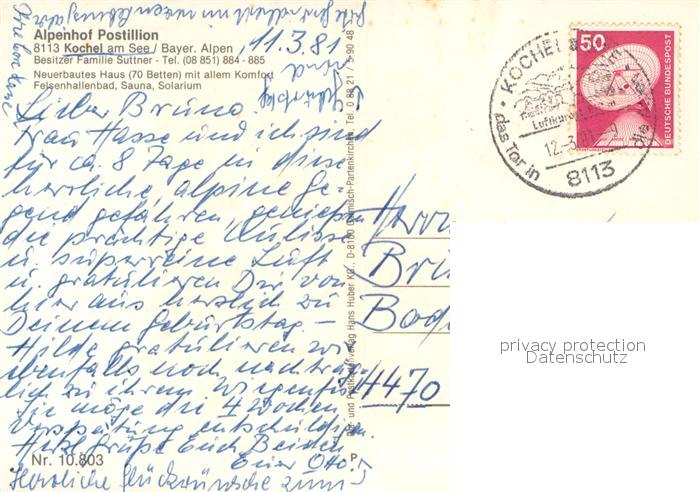 Alpenhof Postillion
8113 Kochel am See / Bayer. Alpen
Besitzer Familie Suttner - Tel. (08 851) 884 - 885
Neuerbautes Haus (70 Betten) mit allem Komfort
Felsenhallenbad, Sauna, Solarium
11.3.81
Lieber Bruno.
Frau Hasse und ich sind
für ca. 8 Tage in diese
herrliche alpine Ge-
gend gefahren, genießen
die prächtige Kulisse
u. superreine Luft
u. gratulieren Dir von
hier aus herzlich zu
Deinem Geburtstag. –
Hilde gratulieren wir
ebenfalls noch nachträg-
lich zu ihrem Wiegenfest
Sie möge die 4 Wochen
Verspätung entschuldigen.
Herzl. Grüße Euch Beiden
Euer Otto.
Herzliche Glückwünsche zum
Geburtstag und
Nr. 10.803
Bild- und Postkartenverlag Hans Huber KG., D-8100 Garmisch-Partenkirchen, Tel. 0 88 21 / 5 90 48
P
Herrn
4470
50
DEUTSCHE BUNDESPOST
KOCHEL
Luftkurort
das Tor in
8113
privacy protection
Datenschutz